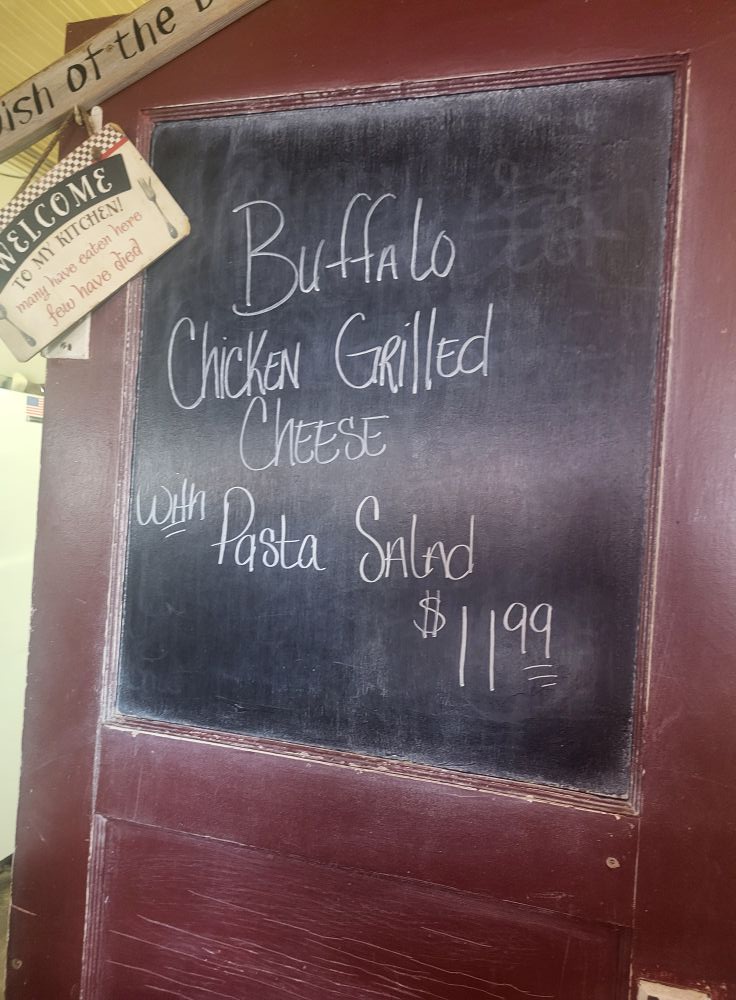 Dish of the D
WELCOME
TO MY KITCHEN!
many have eaten here
few have died
Buffalo
Chicken Grilled
Cheese
with Pasta Salad
$11.99